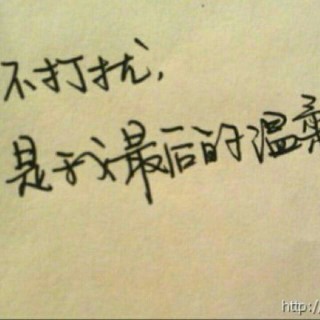 不打扰，
是我最后的温柔
http://